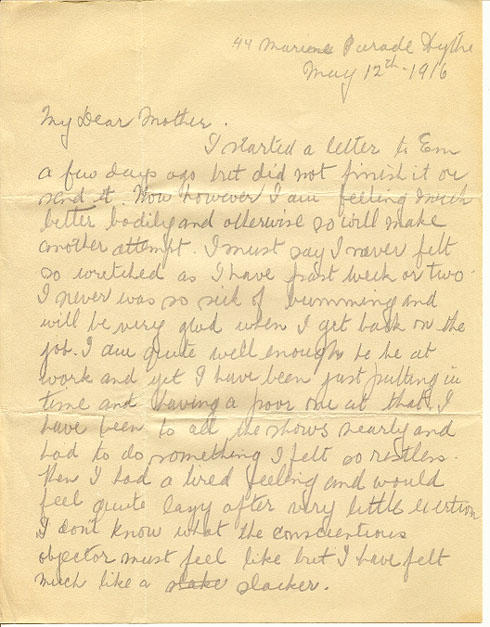 44 Marine Parade Hythe
May 12th - 1916
My Dear Mother.
I started a letter to Em
a few days ago but did not finish it or
send it. Now however I am feeling much
better bodily and otherwise so will make
another attempt. I must say I never felt
so wretched as I have past week or two.
I never was so sick of bumming and
will be very glad when I get back on the
job. I am quite well enough to be at
work and yet I have been just putting in
time and having a poor one at that. I
have been to all the shows nearly and
had to do something I felt so restless.
Then I had a tired feeling and would
feel quite lazy after very little exertion
I don't know what the conscientious
objector must feel like but I have felt
much like a slacker.